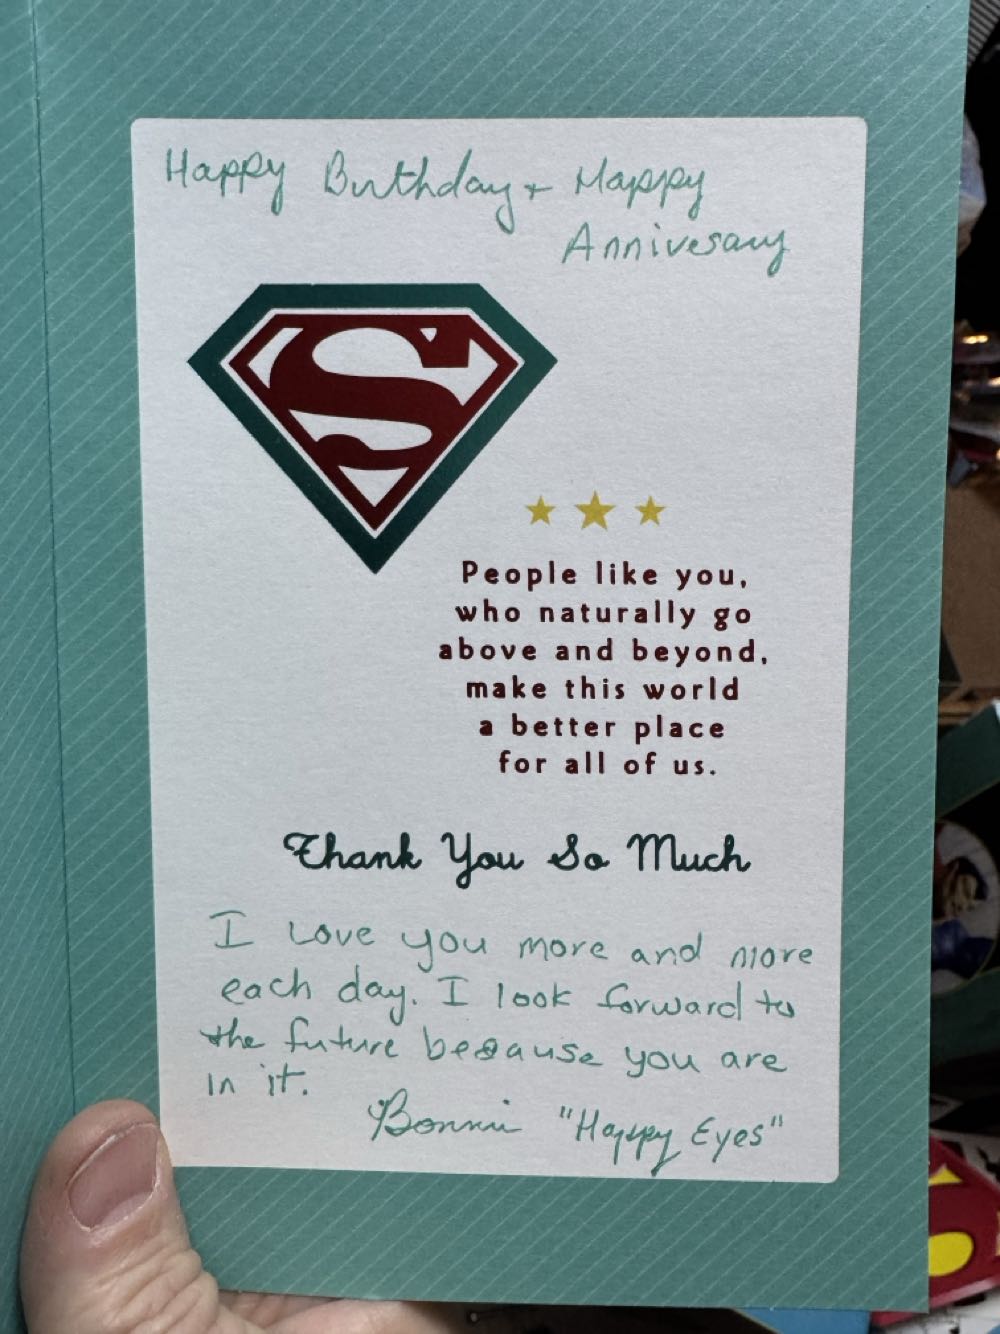 Happy Birthday + Happy
Annivesary
S
People like you,
who naturally go
above and beyond,
make this world
a better place
for all of us.
Thank You So Much
I love you more and more
each day. I look forward to
the future because you are
in it.
Bonnie "Happy Eyes"